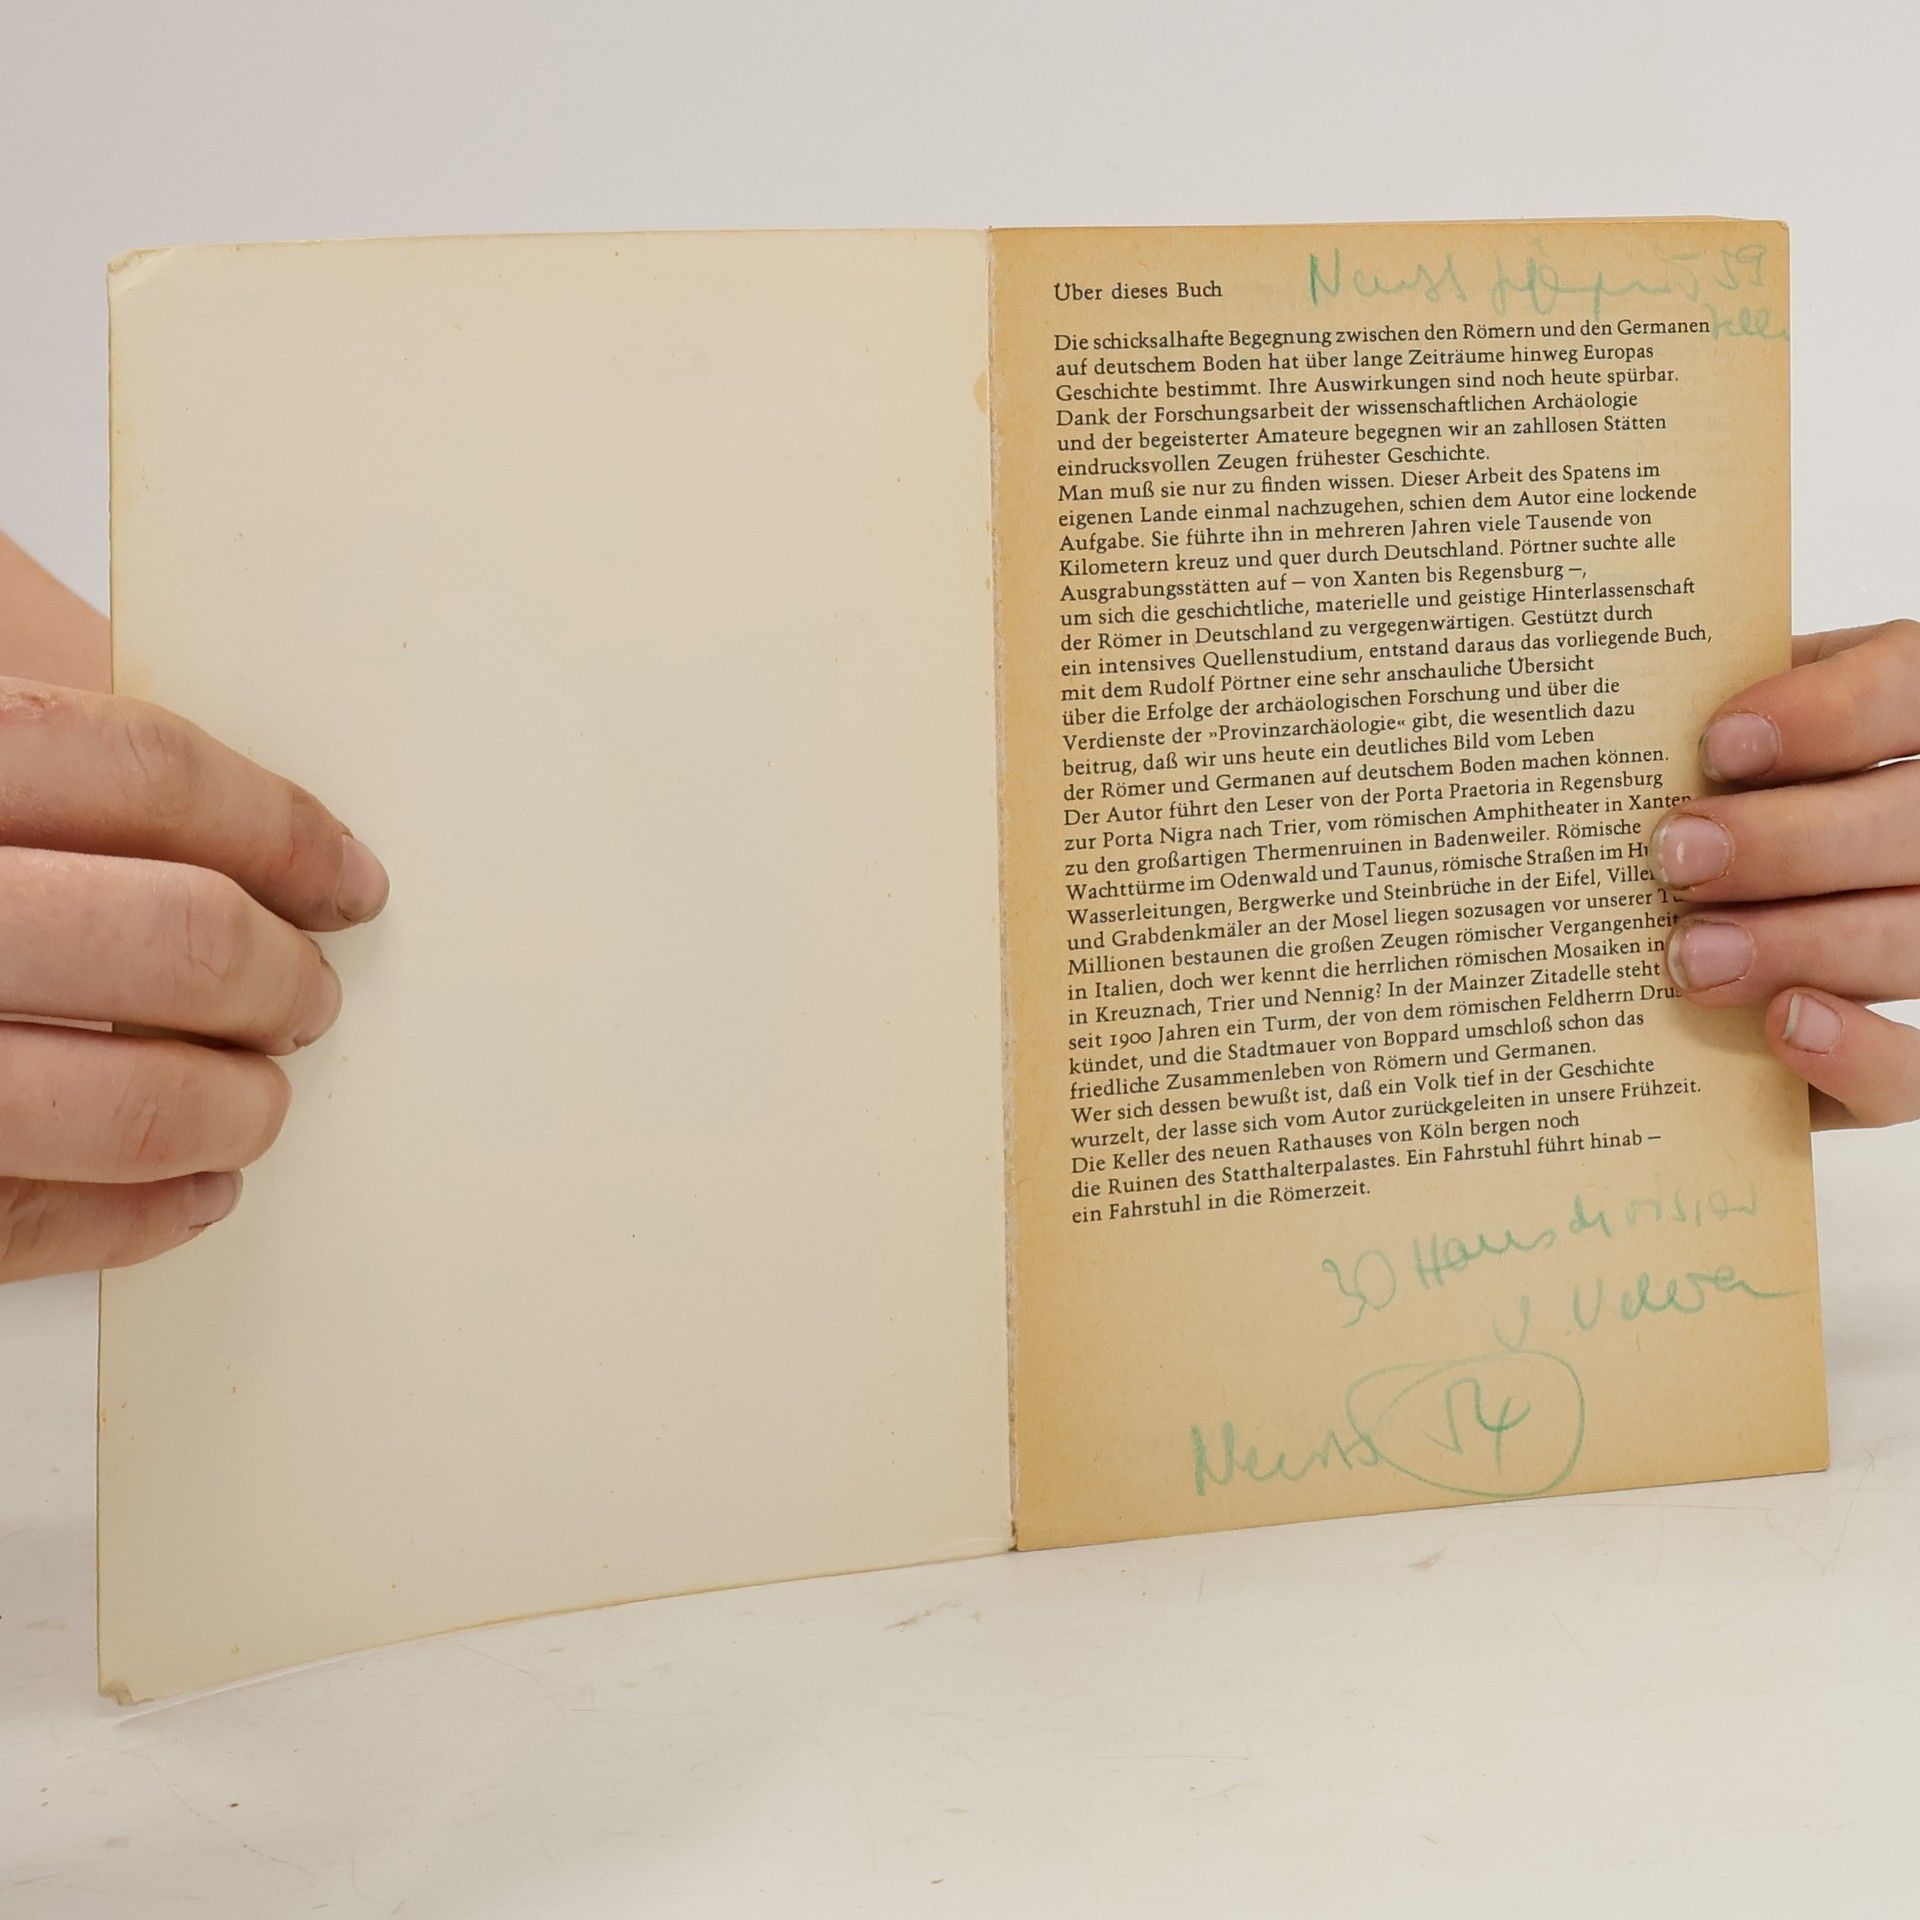 Über dieses Buch
59
Die schicksalhafte Begegnung zwischen den Römern und den Germanen
auf deutschem Boden hat über lange Zeiträume hinweg Europas
Geschichte bestimmt. Ihre Auswirkungen sind noch heute spürbar.
Dank der Forschungsarbeit der wissenschaftlichen Archäologie
und der begeisterter Amateure begegnen wir an zahllosen Stätten
eindrucksvollen Zeugen frühester Geschichte.
Man muß sie nur zu finden wissen. Dieser Arbeit des Spatens im
eigenen Lande einmal nachzugehen, schien dem Autor eine lockende
Aufgabe. Sie führte ihn in mehreren Jahren viele Tausende von
Kilometern kreuz und quer durch Deutschland. Pörtner suchte alle
Ausgrabungsstätten auf – von Xanten bis Regensburg –,
um sich die geschichtliche, materielle und geistige Hinterlassenschaft
der Römer in Deutschland zu vergegenwärtigen. Gestützt durch
ein intensives Quellenstudium, entstand daraus das vorliegende Buch,
mit dem Rudolf Pörtner eine sehr anschauliche Übersicht
über die Erfolge der archäologischen Forschung und über die
Verdienste der »Provinzarchäologie« gibt, die wesentlich dazu
beitrug, daß wir uns heute ein deutliches Bild vom Leben
der Römer und Germanen auf deutschem Boden machen können.
Der Autor führt den Leser von der Porta Praetoria in Regensburg
zur Porta Nigra nach Trier, vom römischen Amphitheater in Xanten
zu den großartigen Thermenruinen in Badenweiler. Römische
Wachttürme im Odenwald und Taunus, römische Straßen im
Wasserleitungen, Bergwerke und Steinbrüche in der Eifel,
und Grabdenkmäler an der Mosel liegen sozusagen vor unserer
Millionen bestaunen die großen Zeugen römischer Vergangenheit
in Italien, doch wer kennt die herrlichen römischen Mosaiken in
in Kreuznach, Trier und Nennig? In der Mainzer Zitadelle steht
seit 1900 Jahren ein Turm, der von dem römischen Feldherrn
kündet, und die Stadtmauer von Boppard umschloß schon das
friedliche Zusammenleben von Römern und Germanen.
Wer sich dessen bewußt ist, daß ein Volk tief in der Geschichte
wurzelt, der lasse sich vom Autor zurückgeleiten in unsere Frühzeit.
Die Keller des neuen Rathauses von Köln bergen noch
die Ruinen des Statthalterpalastes. Ein Fahrstuhl führt hinab –
ein Fahrstuhl in die Römerzeit.
30
54